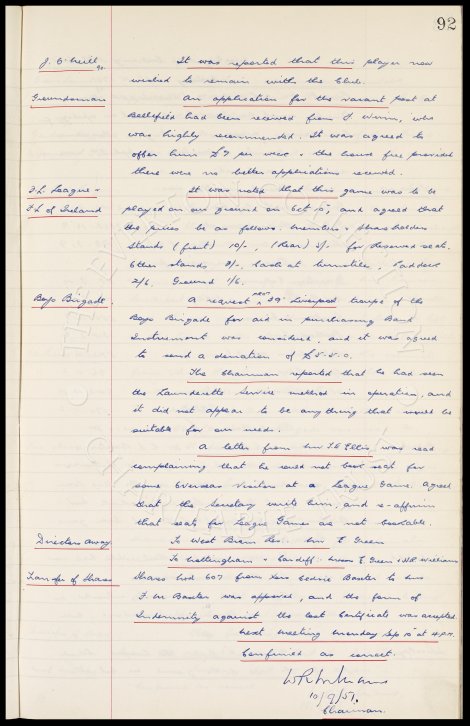 92
J. O'Neill
It was reported that this player now
wished to remain with the Club.
Groundsman
An application for the vacant post at
Bellefield had been received from J Winn, who
was highly recommended. It was agreed to
offer him £7 per week & the house free provided
there were no better applications received.
F.L. League v
F.L of Ireland
It was noted that this game was to be
played on our ground on Oct 10, and agreed that
the prices be as follows: members & shareholders
Stands (front) 10/-, (Rear) 5/- for Reserved seats.
Other stands 3/- cash at turnstile, Paddock
2/6. Ground 1/6.
Boys Brigade.
A request from 39th Liverpool troupe of the
Boys Brigade for aid in purchasing Band
Instrument was considered, and it was agreed
to send a donation of £5-5-0.
The Chairman reported that he had seen
the Launderette Service method in operation, and
it did not appear to be anything that would be
suitable for our needs.
A letter from Mr T.C Ellis was read
complaining that he could not book seats for
some Overseas Visitors at a League Game. Agreed
that the Secretary write him, and re-affirm
that seats for League Games are not bookable.
Directors away
To West Brom Res: Mr E Green
To Nottingham & Cardiff: Messrs E. Green & N.R Williams
Transfer of Shares
Shares Nod 607 from Cedric Baxter to Mr
F. W. Baxter was approved, and the form of
Indemnity against the lost Certificate was accepted
Next meeting Monday Sep 10th at 4 P.M.
Confirmed as correct.
10/9/51.
Chairman.